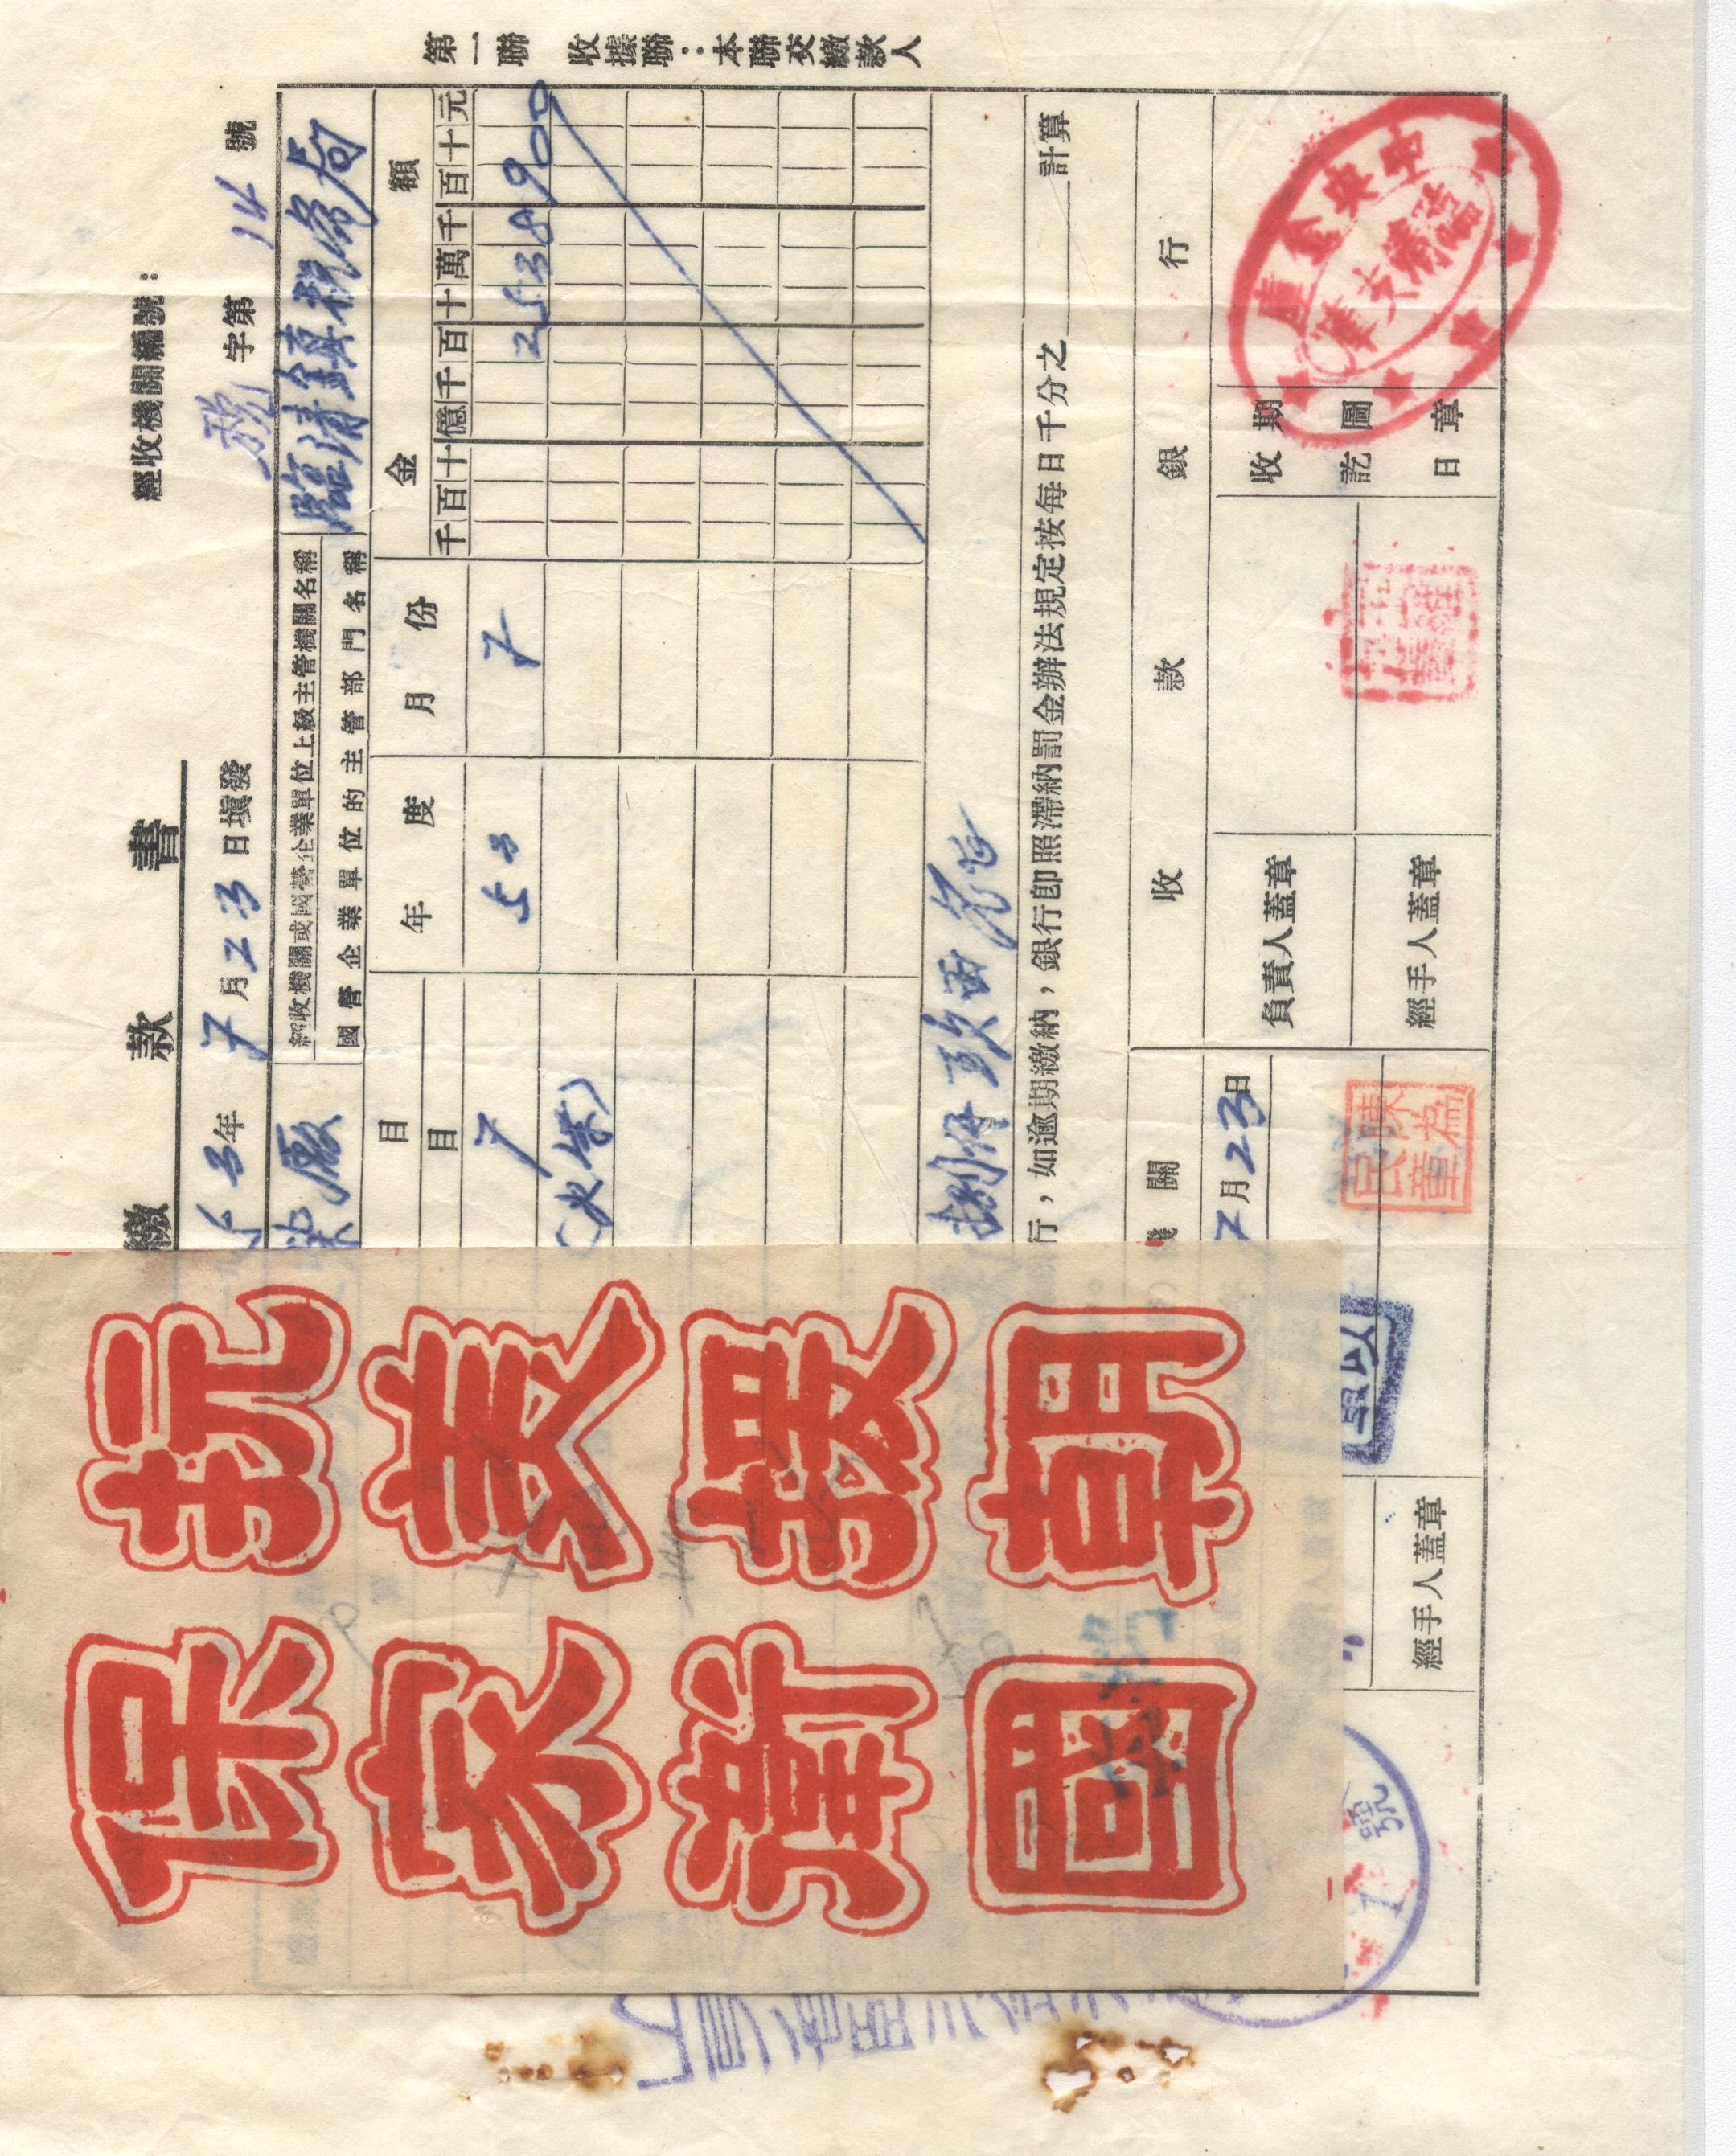 第一聯 收據聯：本聯交繳款人
繳款書
經收機關編號：
53年7月23日填發
稅字第14號
柴廠
經收機關或國營企業單位上級主管機關名稱
國營企業單位的主管部門名稱
臨清鎮稅務局
目
年度
月份
金額
目
千百十億千百十萬千百十元
7
53
7
2538900
(火柴)
捌仟玖百元
行，如逾期繳納，銀行卽照滯納罰金辦法規定按每日千分之 計算
機關
收款銀行
7月23日
負責人蓋章
收訖日期圖章
經手人蓋章
經手人蓋章
陳為民章
中央金庫
臨清
1號
抗美援朝
保家衛國